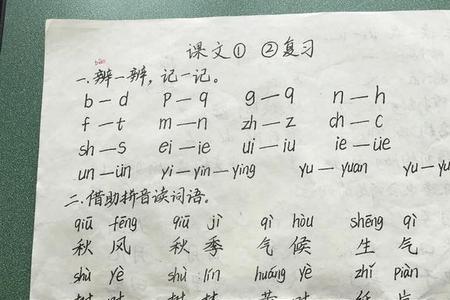 课文① ②复习
biàn
一.辨一辨，记一记。
b—d p—q g—q n—h
f—t m—n zh—z ch—c
sh—s ei—ie ui—iu ie—üe
un—ün yi—yin—ying yu—yuan yu—yu
二.借助拼音读词语。
qiū fēng qiū jì qì hòu shēng qì
秋风 秋季 气候 生气
shù yè shù lín huáng yè zhǐ piàn